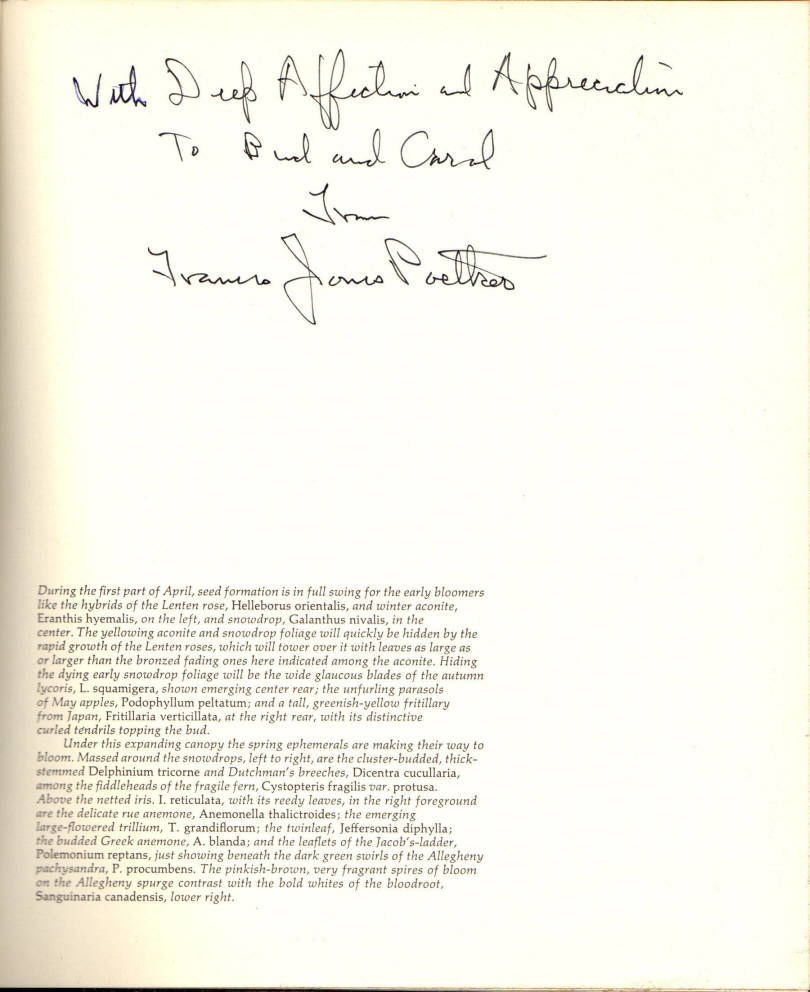 With Deep Affection and Appreciation
To Bud and Carol
From
Frances Jones Poetker
During the first part of April, seed formation is in full swing for the early bloomers
like the hybrids of the Lenten rose, Helleborus orientalis, and winter aconite,
Eranthis hyemalis, on the left, and snowdrop, Galanthus nivalis, in the
center. The yellowing aconite and snowdrop foliage will quickly be hidden by the
rapid growth of the Lenten roses, which will tower over it with leaves as large as
or larger than the bronzed fading ones here indicated among the aconite. Hiding
the dying early snowdrop foliage will be the wide glaucous blades of the autumn
lycoris, L. squamigera, shown emerging center rear; the unfurling parasols
of May apples, Podophyllum peltatum; and a tall, greenish-yellow fritillary
from Japan, Fritillaria verticillata, at the right rear, with its distinctive
curled tendrils topping the bud.
Under this expanding canopy the spring ephemerals are making their way to
bloom. Massed around the snowdrops, left to right, are the cluster-budded, thick-
stemmed Delphinium tricorne and Dutchman's breeches, Dicentra cucullaria,
among the fiddleheads of the fragile fern, Cystopteris fragilis var. protusa.
Above the netted iris. I. reticulata, with its reedy leaves, in the right foreground
are the delicate rue anemone, Anemonella thalictroides; the emerging
large-flowered trillium, T. grandiflorum; the twinleaf, Jeffersonia diphylla;
the budded Greek anemone, A. blanda; and the leaflets of the Jacob's-ladder,
Polemonium reptans, just showing beneath the dark green swirls of the Allegheny
pachysandra, P. procumbens. The pinkish-brown, very fragrant spires of bloom
on the Allegheny spurge contrast with the bold whites of the bloodroot,
Sanguinaria canadensis, lower right.